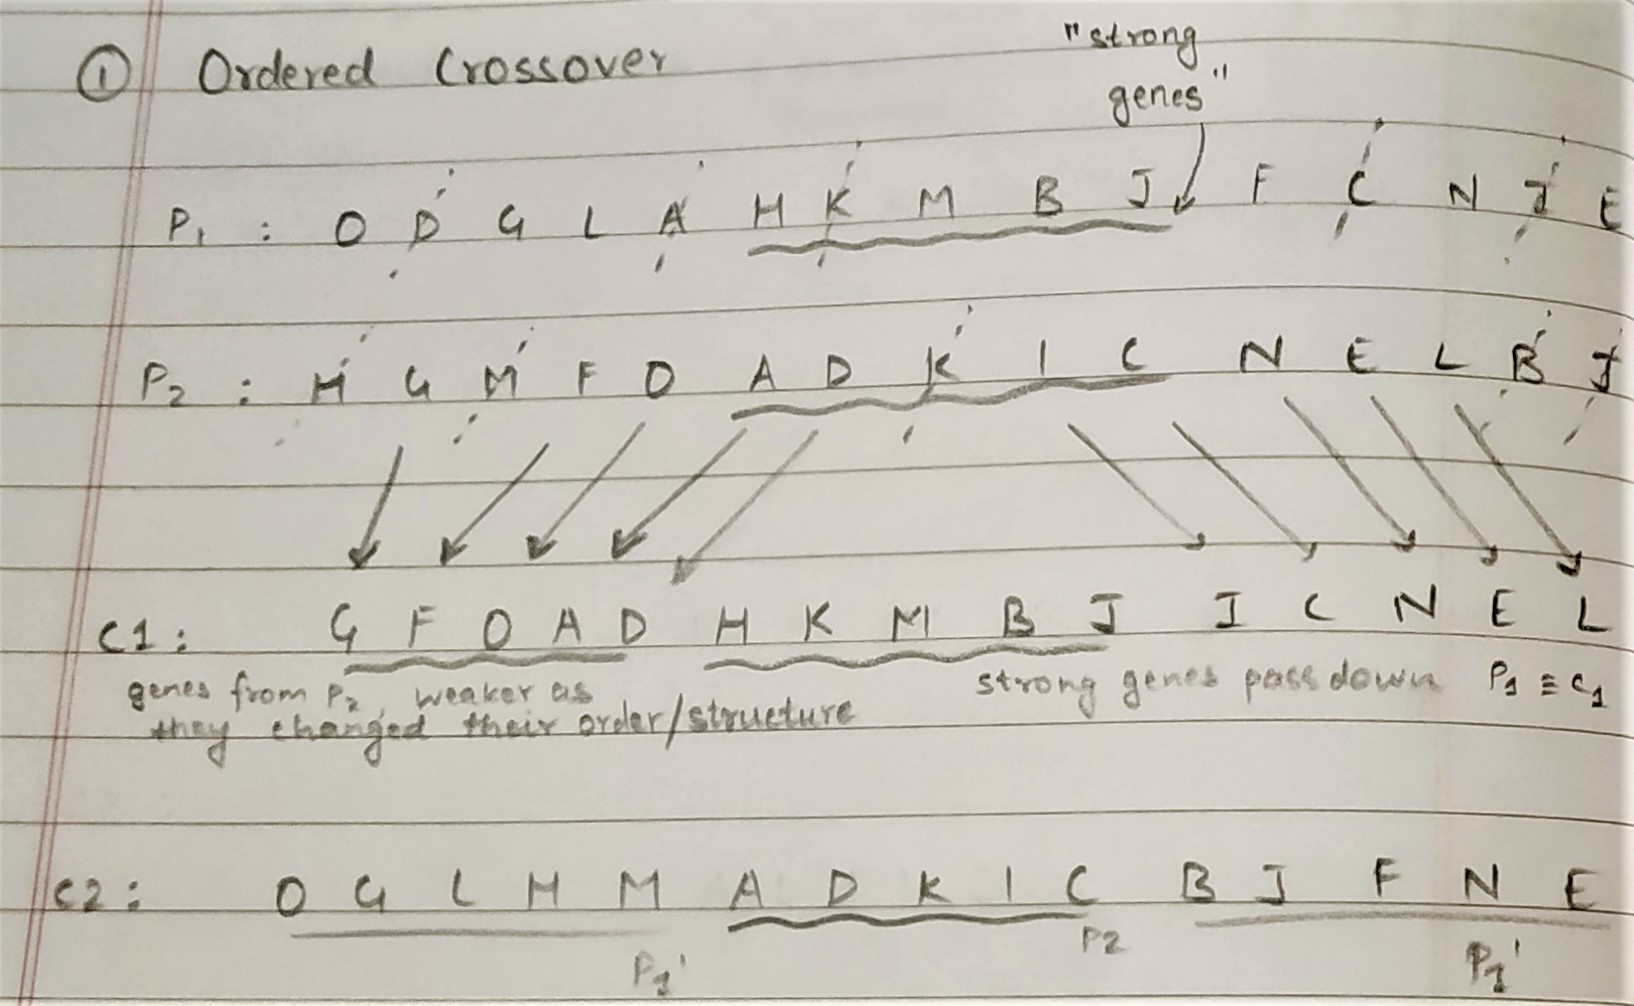 ① Ordered Crossover
"strong
genes"
P₁ : O D G L A H K M B J F C N I E
P₂ : H G M F O A D K I C N E L B J
C1: G F O A D H K M B J I C N E L
genes from P₂, weaker as
they changed their order/structure
strong genes pass down P₁ ≡ C₁
C2: O G L H M A D K I C B J F N E
P₁' P2 P₁'